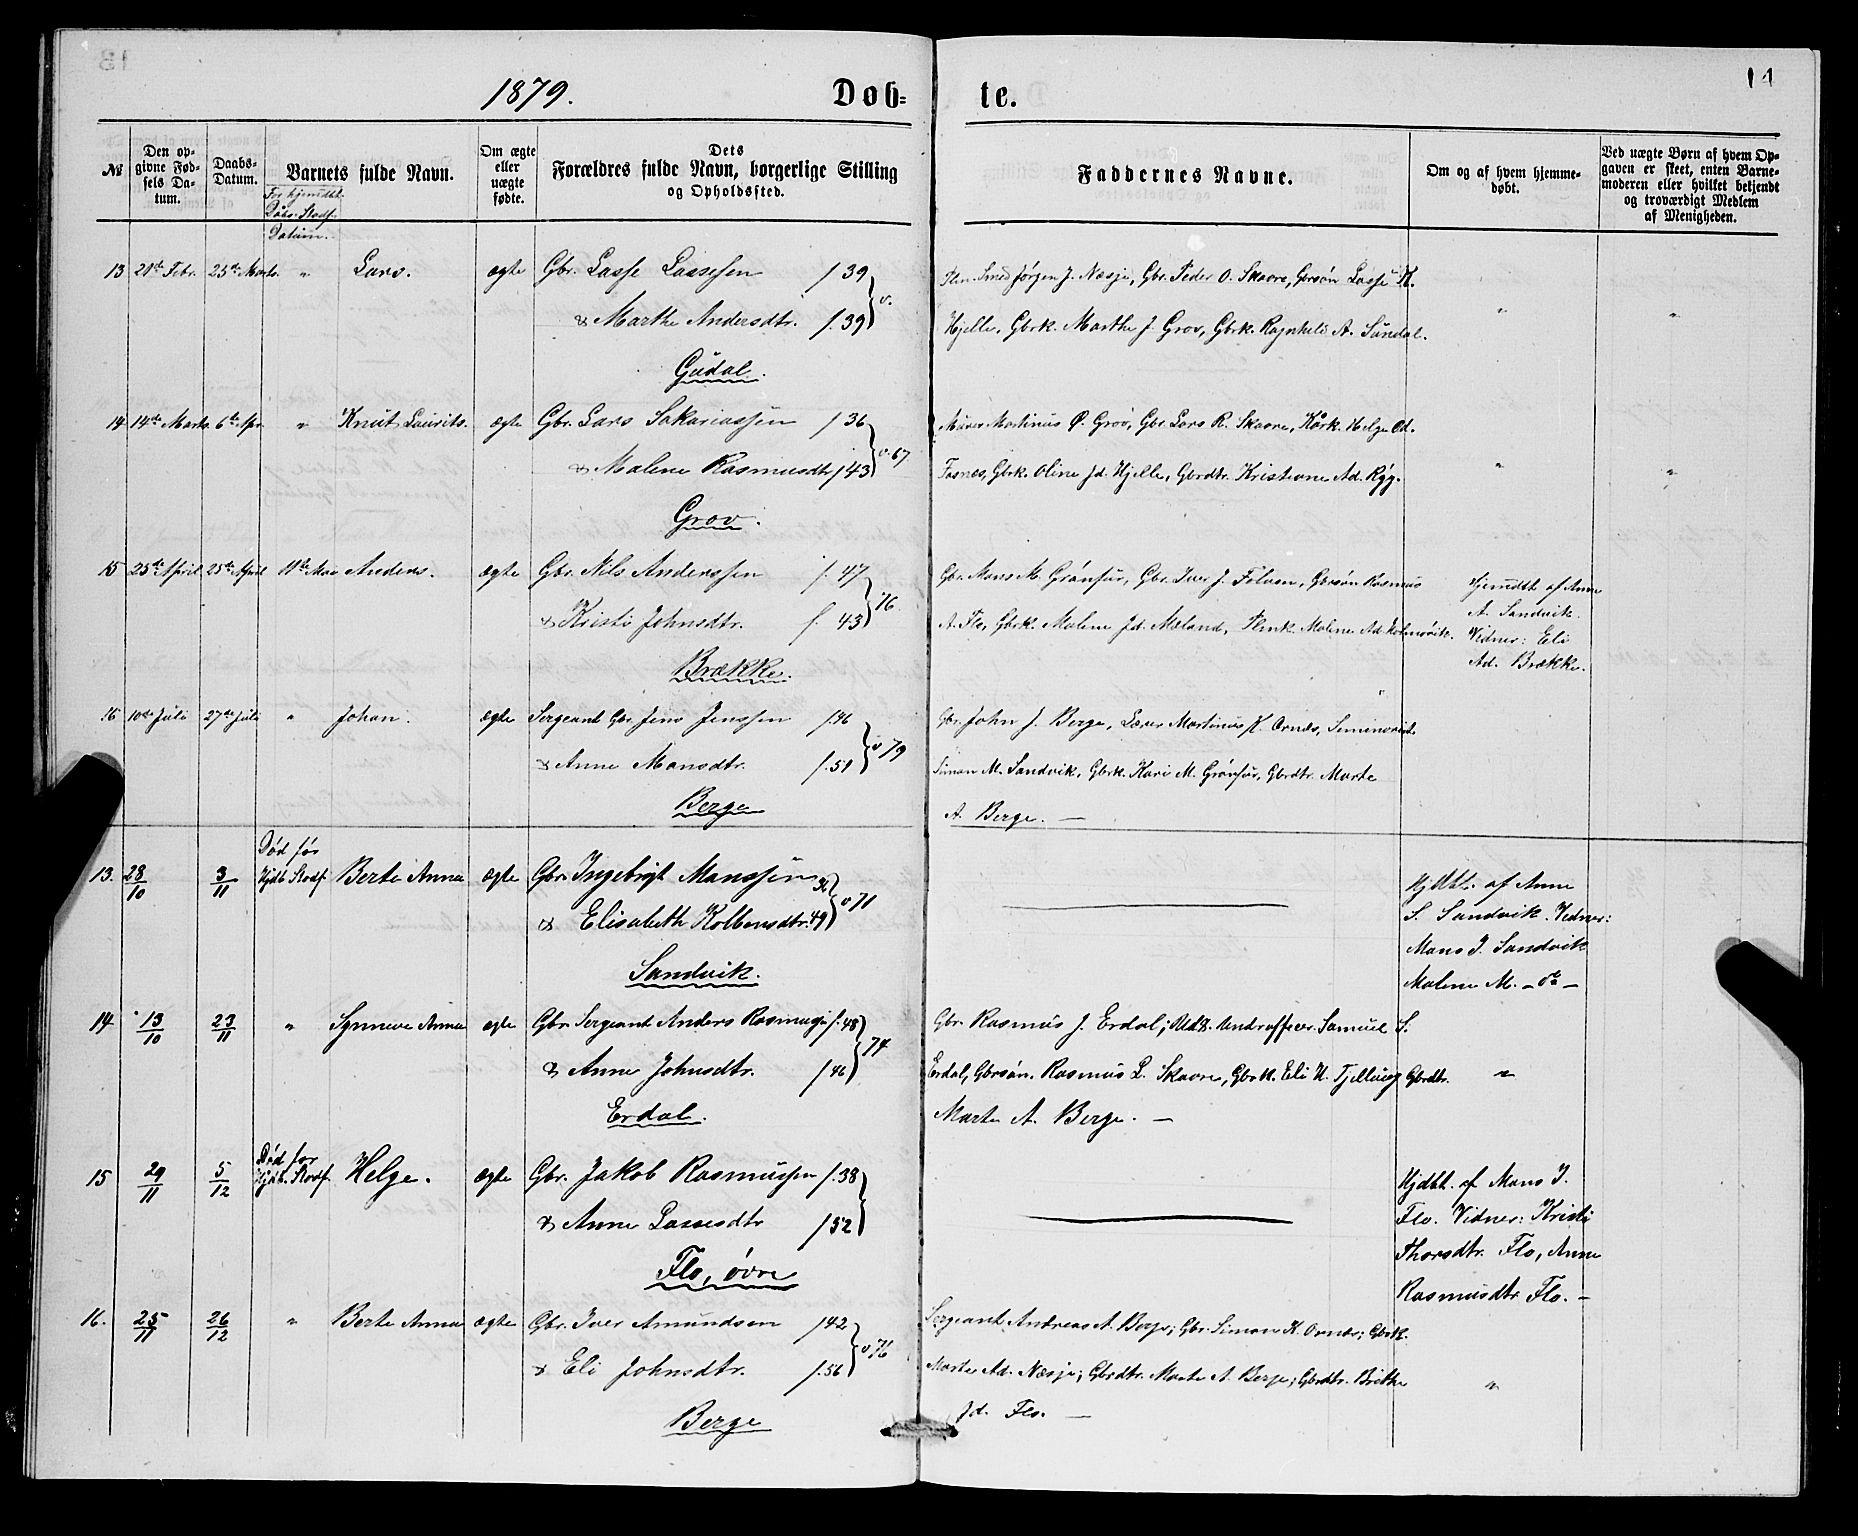 1879. Dob= te. 14
№
Den op-
givne Fød-
sels Da-
tum.
Daabs-
Datum.
Barnets fulde Navn.
For hjemdbt.
Dåbs. Stadf.
Datum.
Om ægte
eller
uægte
fødte.
Dets
Forældres fulde Navn, borgerlige Stilling
og Opholdssted.
Faddernes Navne.
Om og af hvem hjemme-
døbt.
Ved uægte Børn af hvem Op-
gaven er skeet, enten Barne-
moderen eller hvilket bekjendt
og troværdigt Medlem
af Menigheden.
13 21de Febr. 23de Marts. " Lars. ægte Gbr. Lasse Lassesen f 39 Smed Jørgen J. Næsje, Gbr. Peder O. Skaare, Gbrsøn Lasse K.
& Marthe Andersdtr. f. 39 } v. Hjelle, Gbrk. Marthe J. Grov, Gbrk. Ragnhili A. Sundal. " "
Gudal.
14 14de Marts. 6te Apr. " Knut Laurits. ægte Gbr. Lars Sakariassen f 36 Murer Martinus O. Grov, Gbr. Lars R. Skaare, Kårk. Helge Od.
& Malene Rasmusdtr f 43 } v. 67 Tasnes, Gbrk. Oline Jd. Hjelle, Gbrdtr. Kristiane Ad. Ryg. " "
Grov.
15 25de April 25de April 11te Mai Anders. ægte Gbr. Nils Anderssen f. 47 Gbr. Mons M. Grønfur, Gbr. Iver J. Fölven, Gbrsøn Rasmus Hjemdbt af Anne
& Kristi Johnsdtr. f. 43 } 76. A. Flo, Gbrk. Malene Jd. Mæland, Malene Ad. A. Sandvik.
Brække. Vidner: Eli
Ad. Brække.
16 10de Juli 27de Juli " Johan. ægte Sergeant Gbr. Jens Jenssen f. 46 Gbr. John J. Berge, Lærer Martinus K. Ornæs, Seminarist
& Anne Monsdtr. f. 51 } v 79 Simon M. Sandvik, Gbrk. Kari M. Grønfur, Gbrdtr. Marte
Berge A. Berge. —
13. 28/10 3/11 Død før
Hjdb. Stadf. Berte Anna ægte Gbr. Ingebrigt Monssen 36 Hjdbt. af Anne
& Elisabeth Kolbensdtr. 49 } v 71 S. Sandvik. Vidner:
Sandvik. Mons I. Sandvik
Malene M. – do –
14 13/10 23/11 " Synneve Anna ægte Gbr. Sergeant Anders Rasmussen f. 48 Gbr. Rasmus J. Erdal; Underofficer Samuel S.
& Anne Johnsdtr. f 46 } 74 Erdal, Gbrsøn. Rasmus L. Skaare, Gbrk. Eli H. Tjellaug Gbrdtr. "
Erdal. Marte A. Berge. —
15 29/11 5/12 Død før
Hjdb. Stadf. Helge. ægte Gbr. Jakob Rasmussen f. 38 Hjdbt. af Mons I.
& Anne Lassesdtr f 52 } Flo. Vidner: Kristi
Flo, øvre Thorsdtr. Flo, Anne
Rasmusdtr. Flo. –
16. 25/11 26/12 " Berte Anna ægte Gbr. Iver Amundsen f 42 Sergeant Andreas A. Berge; Gbr. Simon K. Ornæs; Gbrk.
& Eli Johnsdtr. f. 56 } v 76 Marte Ad. Næsje; Gbrdtr. Marte A. Berge; Gbrdtr. Brithe "
Berge Jd. Flo. —